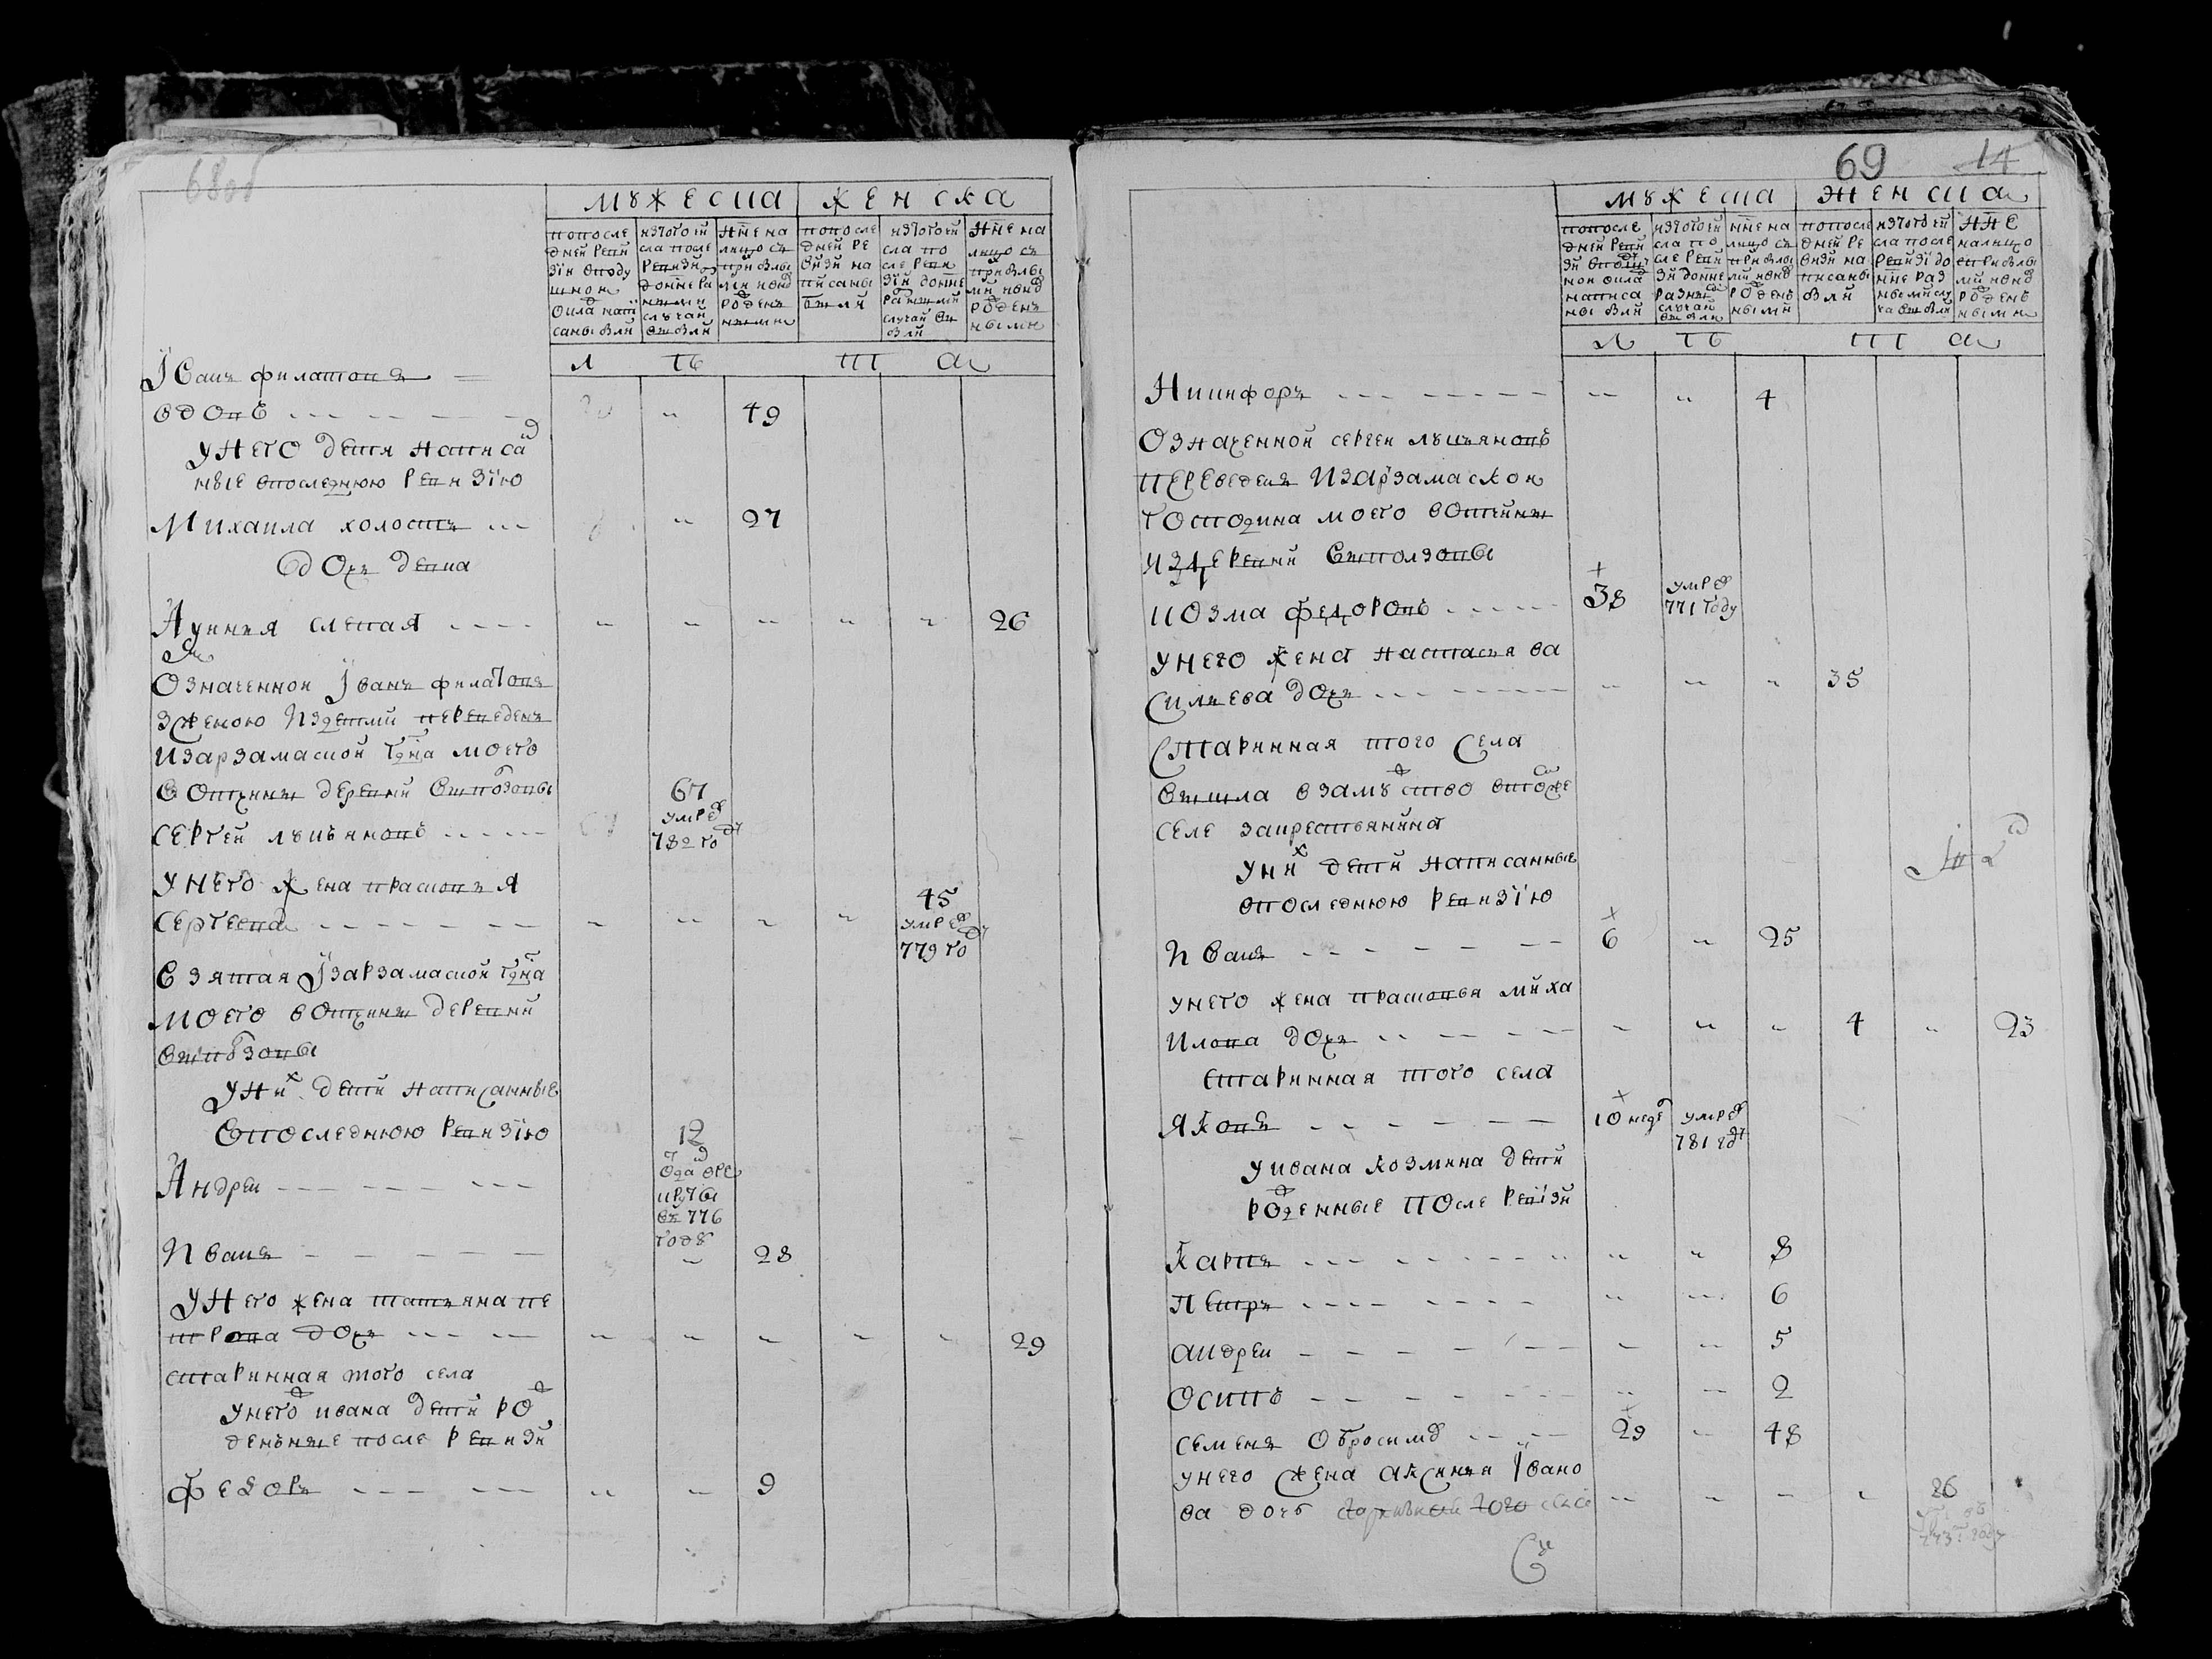 68об
мужеска женска
по после
дней реви
зiи в поду
шном
окла напи
саны были
изтого чи
сла после
ревизи
до нне ра
ными
случаи
выбыли
нне на
лицо съ
прибылы
ми и вно
рожден
ными
по после
дней ре
визи на
писаны
были
изтого чи
сла по
сле реви
зiи до нне
разными
случаи вы
были
нне на
лицо съ
прибылы
ми и внов
рожден
ными
л ѣ т а
Iванъ филатовъ
вдовъ 49
У него дети написа
ные впоследнюю ревизiю
Михаила холостъ 27
вдохъ девка
Аунья слепая 26
Означенной Iванъ филатовъ
зженою издетми переведенъ
изарзамаской гдна моего
вотчины деревни выползовы
Сергей лукьяновъ 67
умре в
782 году
У него жена прасковья
Сергеева 45
умре в
779 го
Взятая Iзарзамаской гдна
моего вотчины деревни
выползовы
У них дети написанные
впоследнюю ревизiю
Андреи 12
одан вре
круты
въ 776
году
Иванъ 28
У него жена татьяна пе
трова дочь 29
старинная того села
У него ивана дети ро
денъные после ревизи
Федоръ 9
69 14
мужеска женска
по после
дней реви
зи в поду
ном окла
написа
ны были
изтого чи
сла по
сле реви
зи до нне
разны
случаи
выбыли
нне на
лицо съ
прибылы
ми и внов
рожден
ными
по после
дней ре
визи на
писаны
были
изтого чи
сла после
ревизi до
нне раз
ными слу
чаи выбыли
нне
на лицо
с прибылы
ми и внов
рожден
ными
л ѣ т а
Никифоръ 4
Означенной сергеи лукьяновъ
переведенъ изарзамаской
господина моего вотчины
издеревни выползовы
Козма федоровъ 38 умре в
771 году
У него жена настасья ва
сильева дочь 35
Старинная того села
вышла взамуство втомже
селе закрестьянина
У них дети написанные
впоследнюю ревизiю
Иванъ 6 25
У него жена прасковья миха
илова дочь 4 23
старинная того села
Яковъ 10 недел умре в
781 год
У ивана козмина дети
рожденные после ревiзи
Карпъ 8
Петръ 6
андреи 5
Осипъ 2
семенъ обросимов 29 48
у него жена аксинья Iвано
ва дочь старинная того села 26
773 году